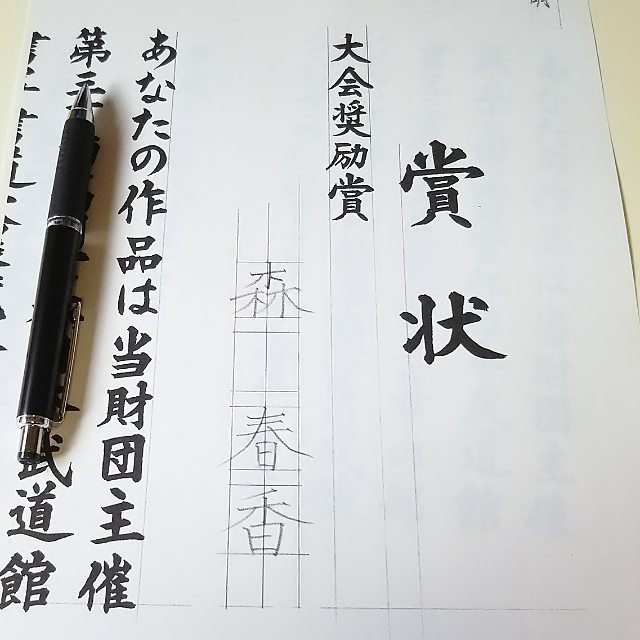 賞状
大会奨励賞
森 春香
あなたの作品は当財団主催
第三
武道館